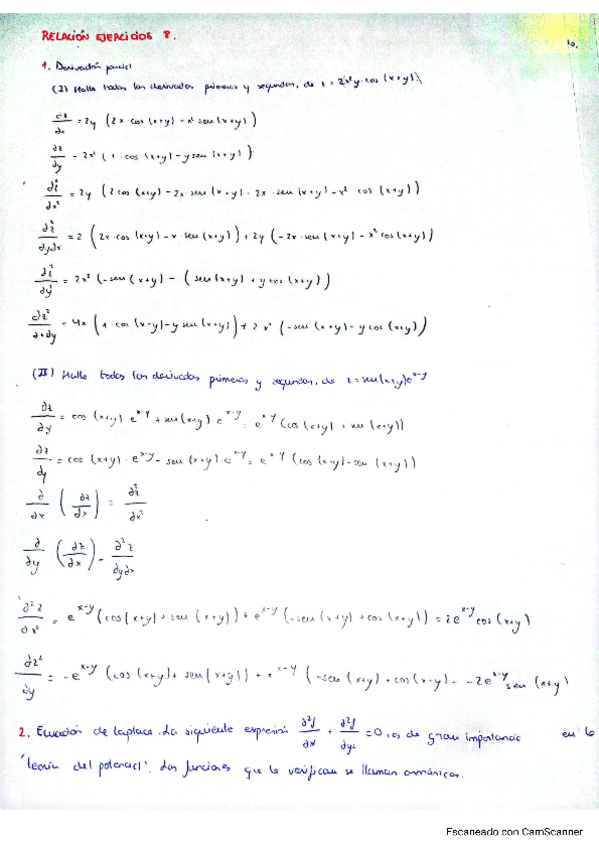 RELACIÓN EJERCICIOS 8.
1. Derivación parcial
(I) Halle todas las derivadas primeras y segundas, de z = 2x²y·cos(x+y)
∂z/∂x = 2y (2x·cos(x+y) - x² sen(x+y))
∂z/∂y = 2x² (1·cos(x+y) - y sen(x+y))
∂²z/∂x² = 2y (2cos(x+y) - 2x·sen(x+y) - 2x·sen(x+y) - x² cos(x+y))
∂²z/∂y∂x = 2 (2x·cos(x+y) - x sen(x+y)) + 2y (-2x·sen(x+y) - x² cos(x+y))
∂²z/∂y² = 2x² (-sen(x+y) - (sen(x+y) + y cos(x+y)))
∂z²/∂x∂y = 4x (1·cos(x+y) - y sen(x+y)) + 2x² (-sen(x+y) - y cos(x+y))
(II) Halle todas las derivadas primeras y segundas, de z = sen(x+y)e^x-y
∂z/∂y = cos(x+y) e^x-y + sen(x+y) e^x-y = e^x-y (cos(x+y) + sen(x+y))
∂z/∂y = cos(x+y)·e^x-y - sen(x+y)·e^x-y = e^x-y (cos(x+y) - sen(x+y))
∂/∂x (∂z/∂x) = ∂²z/∂x²
∂/∂y (∂z/∂x) = ∂²z/∂y∂x
∂²z/∂x² = e^x-y (cos(x+y) + sen(x+y)) + e^x-y (-sen(x+y) + cos(x+y)) = 2e^x-y cos(x+y)
∂z²/∂y = -e^x-y (cos(x+y) + sen(x+y)) + e^x-y (-sen(x+y) + cos(x+y) = -2e^x-y sen(x+y)
2. Ecuación de Laplace. La siguiente expresión ∂²f/∂x + ∂²f/∂y² = 0, es de gran importancia en la
'teoría del potencial'. Las funciones que la verifican se llaman armónicas.
Escaneado con CamScanner